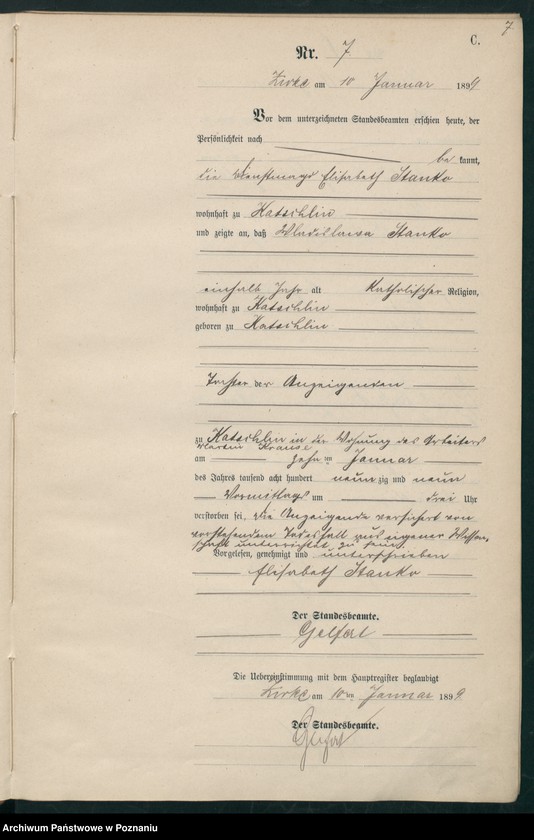 7
C.
Nr. 7
Zirke am 10 Januar 1899
Vor dem unterzeichneten Standesbeamten erschien heute, der
Persönlichkeit nach
be kannt,
die Dienstmagd Elisabeth Stanko
wohnhaft zu Katschlin
und zeigte an, daß Wladislawa Stanko
einhalb Jahr alt Katholischer Religion,
wohnhaft zu Katschlin
geboren zu Katschlin
Tochter der Anzeigenden
zu Katschlin in der Wohnung des Arbeiters
Martin Krause
am zehnten Januar
des Jahres tausend acht hundert neun zig und neun
Vormittags um drei Uhr
verstorben sei. Die Anzeigende versichert von
vorstehendem Todesfall aus eigener Wissen-
schaft unterrichtet zu sein.
Vorgelesen, genehmigt und unterschrieben
Elisabeth Stanko
Der Standesbeamte.
Gelfert
Die Uebereinstimmung mit dem Hauptregister beglaubigt
Zirke am 10ten Januar 1899
Der Standesbeamte.
Gelfert
Archiwum Państwowe w Poznaniu